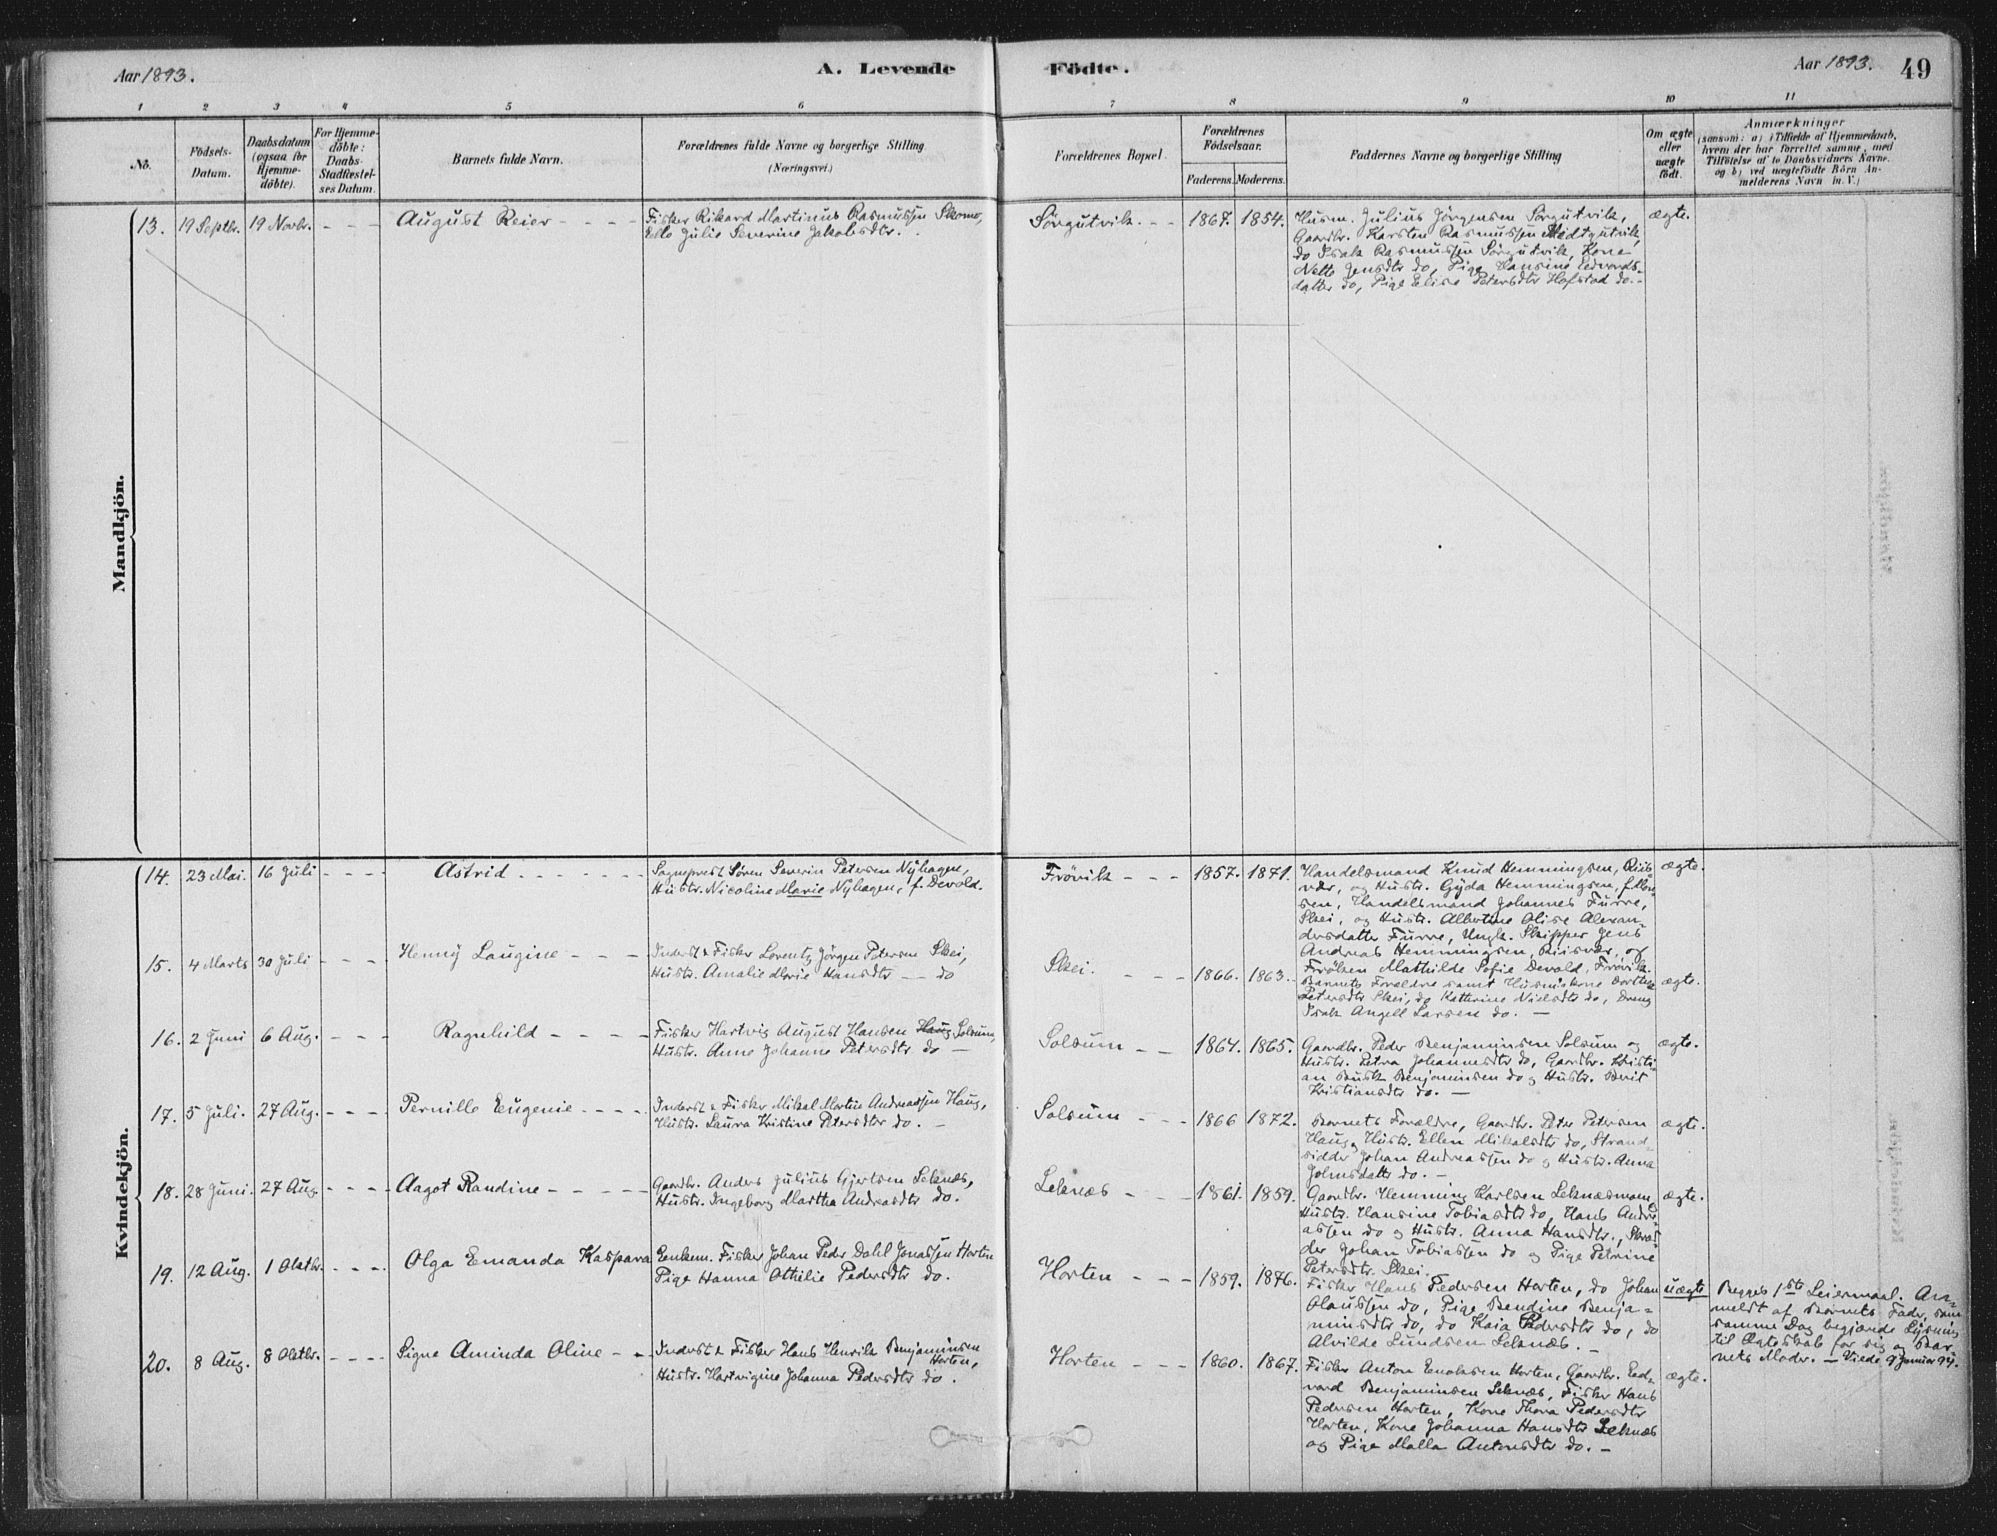 Aar 1893.
A. Levende
Födte.
Aar 1893.
49
1 2 3 4 5 6 7 8 9 10 11
No.
Födsels-
Datum.
Daabsdatum
(ogsaa för
Hjemme-
döbte).
For Hjemme-
döbte:
Daabs-
Stadfæstel-
ses Datum.
Barnets fulde Navn.
Forældrenes fulde Navne og borgerlige Stilling
(Næringsvei.)
Forældrenes Bopæl.
Forældrenes
Födselsaar.
Faderens. Moderens.
Faddernes Navne og borgerlige Stilling
Om ægte
eller
uægte
födt.
Anmærkninger
(saasom: a) i Tilfælde af Hjemmedaab,
hvem der har forrettet samme, med
Tilföielse af to Daabsvidners Navne.
og b) ved uægtefödte Börn An-
melderens Navn m. V.)
Mandkjön.
13. 19 Septbr. 19 Novbr. - - - August Reier - - - -
Fisker Rikard Martinus Rasmussen Skomo,
Julie Severine Jakobsdtr. -
Sörgutvik. - - 1867. 1854.
Husm. Julius Jörgensen Sörgutvik,
Gaardbr. Karsten Rasmussen Midtgutvik,
do Isak Rasmussen Sörgutvik, Kone
Jensdtr do, Pige Hansine Edvards-
datter do, Pige Elise Petersdtr Hofstad do. -
ægte.
Kvindekjön.
14. 23 Mai. 16 Juli - - - Astrid - - - - - -
Sogneprest Sören Severin Petersen Nyhagen,
Hustr. Nicoline Marie Nyhagen, f. Devold.
Frövik - - - 1857. 1871.
Handelsmand Knud Hemmingsen, Riis-
vær, og Hustr. Gyda Hemmingsen, f.
sen, Handelsmand Johannes Furre,
Skei, og Hustr. Albertine Olise Alexan-
dersdatter Furre, Ungk. Skipper Jens
Andreas Hemmingsen, Riisvær, og
Fröken Mathilde Sofie Devold, Frövik.
ægte.
15. 4 Marts 30 Juli - - - Henny Laugine - - -
Inderst & Fisker Lorentz Jörgen Petersen Skei,
Hustr. Amalie Marie Hansdtr - - do
Skei. - - - 1866. 1863.
Barnets Forældre samt Husmskone
Petersdtr Skei, do Kathrine Nielsdtr do, Dreng
Isak Angell Larsen do. -
ægte.
16. 2 Juni 6 Aug. - - - Ragnhild - - - -
Fisker Hartvig August Hansen Haug Solsum,
Hustr. Anne Johanna Petersdtr do -
Solsum - - 1864. 1865.
Gaardbr. Peder Benjaminsen Solsum og
Hustr. Petra Johannesdtr do, Gaardbr. Kristi-
an Benjaminsen do og Hustr. Berit
Kristiansdtr do. -
ægte.
17. 5 Juli. 27 Aug. - - - Pernille Eugenie - - - -
Inderst & Fisker Mikal Martin Andreassen Haug,
Hustr. Laura Kristine Petersdtr do. -
Solsum - - - 1866 1872.
Barnets Forældre, Gaardbr. Peter Petersen
Haug, Hustr. Ellen Mikalsdtr do, Strand-
sidder Johan Andreassen do og Hustr. Anna
Johnsdatter do. -
ægte.
18. 28 Juni. 27 Aug. - - - - Aagot Randine - - - -
Gaardbr. Anders Julius Gjertsen Leknæs,
Hustr. Ingeborg Martha Andreasdtr do.
Leknæs - - - 1861. 1859.
Gaardbr. Hemming Karlsen Leknæsmoen,
Hustr. Hansine Tobiasdtr do, Hans Andre-
assen do og Hustr. Anna Hansdtr.,
der Johan Tobiassen do og Pige Petrine
Petersdtr. Skei.
ægte.
19. 12 Aug. 1 Oktbr. - - - Olga Emanda Kaspara
Enkem. Fisker Johan Peder Dahl Jonassen Horten
Pige Hanna Othilie Pedersdtr do.
Horten - - - 1859. 1876.
Fisker Hans Pedersen Horten, do Johan
Olaussen do, Pige Bendine Benja-
minsdtr do, do Kaia Pedersdtr do, do
Alvilde Lundsen Leknæs. -
uægte
Begges 1ste Leiermaal. An-
meldt af Barnets Fader, som
samme Dag begjærede Lysning
til Ægteskab for sig og Bar-
nets Moder. - Viede 9 Januar 94.
20. 8 Aug. 8 Oktbr. - - - - Signe Aminda Oline - -
Inderst & Fisker Hans Henrik Benjaminsen
Horten,
Hustr. Hartvigine Johanna Pedersdtr do.
Horten - - - 1860. 1867.
Fisker Anton Enoksen Horten, Gaardbr. Ed-
vard Benjaminsen Leknæs, Fisker Hans
Pedersen Horten, Kone Thora Pedersdtr
Horten, Kone Johanna Hansdtr Leknæs
og Pige Malla Antonsdtr do. -
ægte.